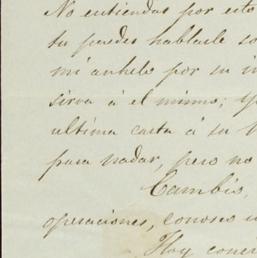 No entiendas por esto
tu puedes hablarle so
mi anhelo por su in
sirva á el mismo; 
ultima carta á su
para nadar, pero no
Cambio,
operaciones, conoses
Hoy